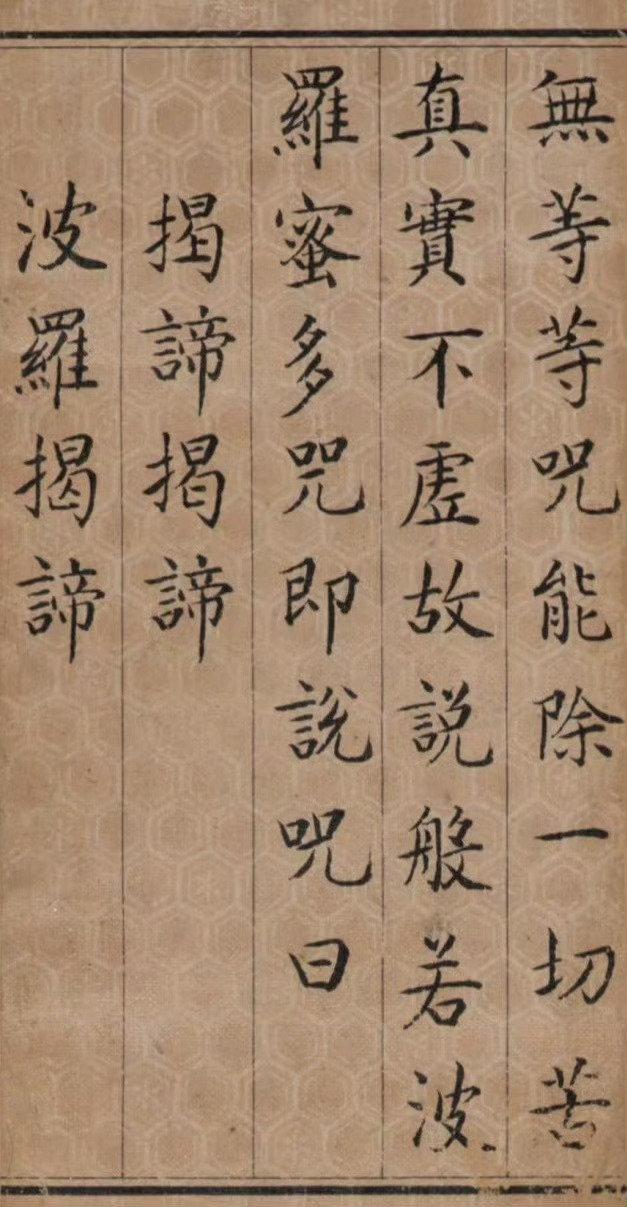 無等等咒能除一切苦
真實不虛故説般若波
羅蜜多咒即說咒曰
揭諦揭諦
波羅揭諦